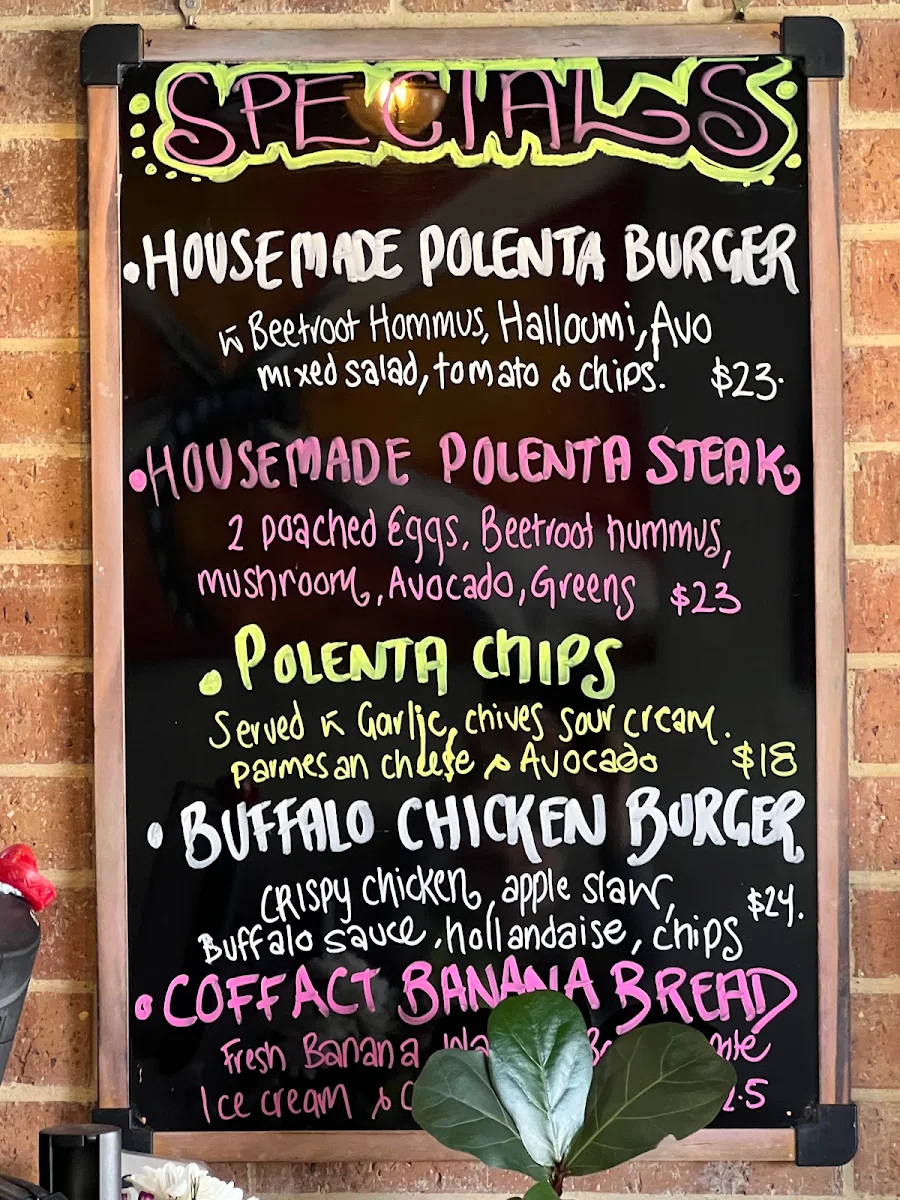 SPECIALS
• HOUSEMADE POLENTA BURGER
w̄ Beetroot Hommus, Halloumi, Avo
mixed salad, tomato & chips. $23.
• HOUSEMADE POLENTA STEAK
2 poached Eggs, Beetroot hummus,
mushroom, Avocado, Greens $23
• POLENTA CHIPS
Served w̄ Garlic, chives sour cream.
parmesan cheese & Avocado $18
• BUFFALO CHICKEN BURGER
CRISPY chicken, apple slaw,
$24.
Buffalo sauce, hollandaise, chips
• COFFACT BANANA BREAD
Fresh Banana
Ice cream &